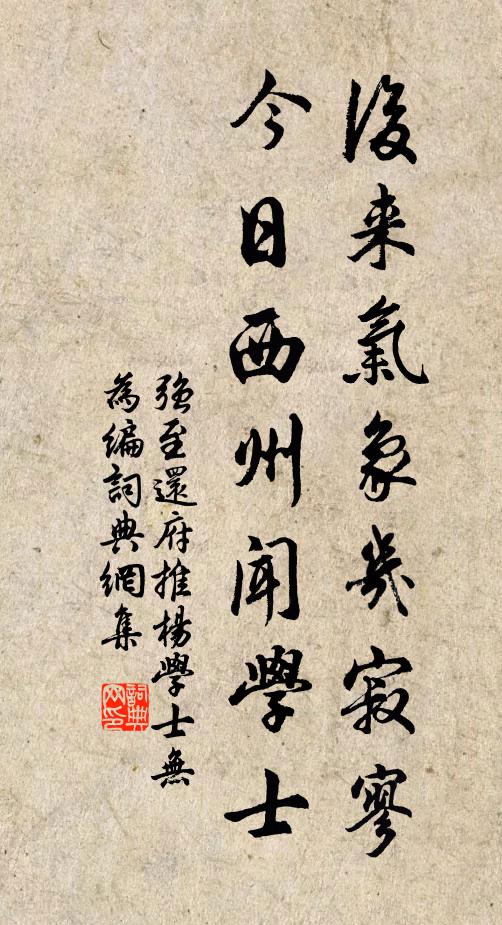 後来氣象幾寂寥
今日西州聞學士
強至還府推楊學士無
為編詞典網集
詞典
网印